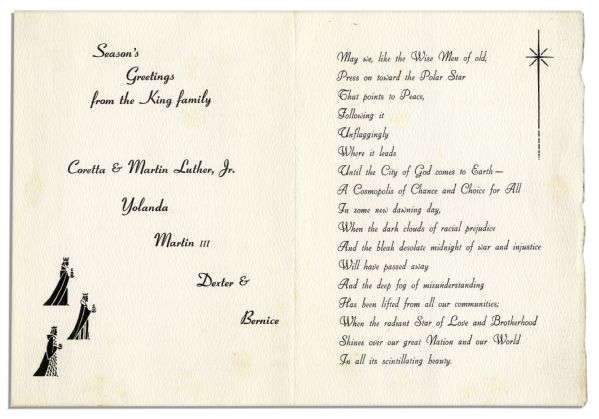 Season's
Greetings
from the King family
Coretta & Martin Luther, Jr.
Yolanda
Martin III
Dexter &
Bernice
May we, like the Wise Men of old,
Press on toward the Polar Star
That points to Peace,
Following it
Unflaggingly
Where it leads
Until the City of God comes to Earth—
A Cosmopolis of Chance and Choice for All
In some new dawning day,
When the dark clouds of racial prejudice
And the bleak desolate midnight of war and injustice
Will have passed away
And the deep fog of misunderstanding
Has been lifted from all our communities;
When the radiant Star of Love and Brotherhood
Shines over our great Nation and our World
In all its scintillating beauty.